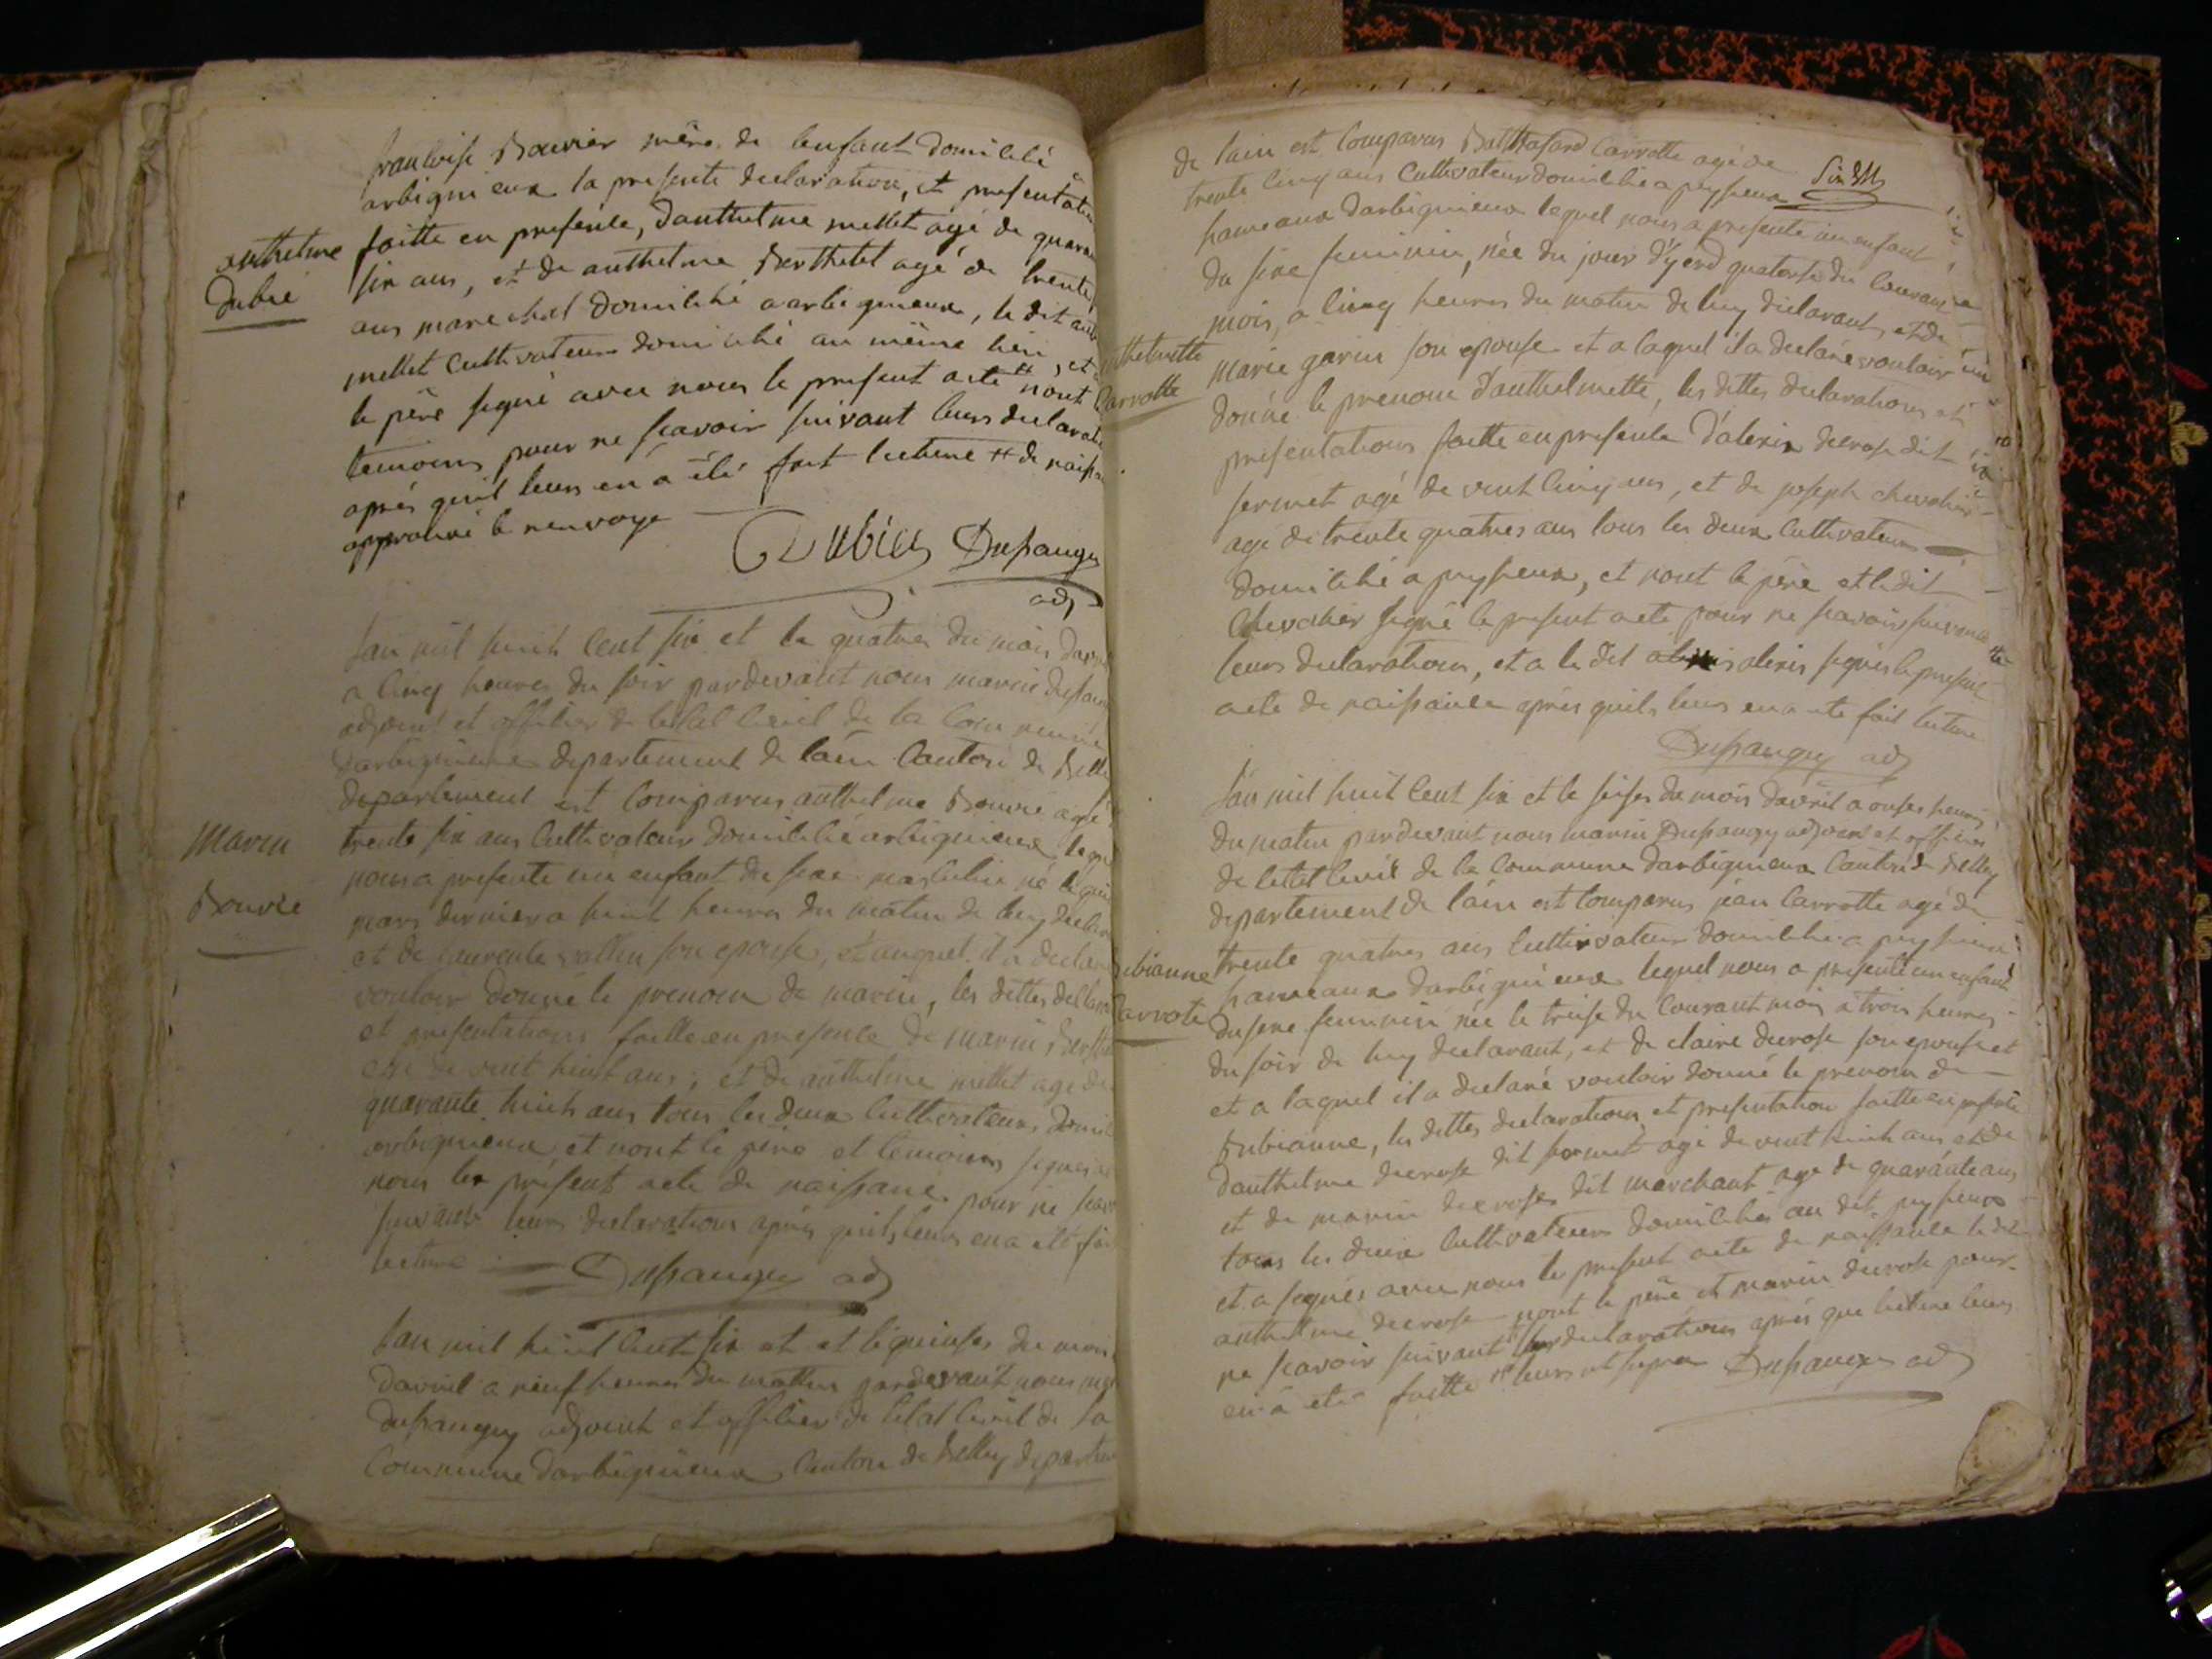 francoise Bouvier mère de lenfant domicilié a
arbignieux la presente declaration, et presentation
faitte en presence, danthelme mellet agé de quarante
six ans, et de anthelme Berthelet agé de trente
ans marechal domicilié a arbignieux, le dit
mellet cultivateur domicilié au même lieu, et
le père signé avec nous le present acte # nont
temoins pour ne scavoir suivant leurs declaration
après quil leurs en a été fait lecture # de naissance
approuvé le renvoye
anthelme
Dubié
Dubieu Dupaugy
adj
lan mil huit cent six et le quatres du mois davril
a cinq heures du soir pardevant nous marin dupaugy
adjoint et officier de letat civil de la commune
darbignieux departement de lain canton de Belley
departement est comparus anthelme Bouvié agé
trente six ans cultivateur domicilié arbignieux lequel
nous a presenté un enfant du sexe masculin né le
mars dernier a huit heures du matin de luy declarant
et de laurence son epouse, et auquel il a declaré
vouloir donné le prenom de marin, les dittes declarations
et presentations faitte en presence de marin
agé de vent huit ans, et de anthelme mellet agé de
quarante huit ans tous les deux cultivateurs domicilié
arbignieux et nont le père et temoins signés
nous les présent acte de naissance pour ne scavoir
suivant leurs declarations après quils leurs en a été fait
lecture Dupaugy adj
Marin
Bouvié
lan mil huit cent six et et le quinses du mois
davril a neuf heures du mattin pardevant nous
dupaugy adjoint et officier de letat civil de la
commune darbignieux canton de Belley departement
de lain est comparus Balthasard Carrotte agé de
trente cinq ans cultivateur domicilié a peyzieux
hameaux darbignieux lequel nous a presenté un enfant
du sexe feminin, née du jour d'yerd quatorse du courant
mois, a cinq heures du matin de luy declarant, et de
marie garin son epouse et a laquel il a declaré vouloir
donné le prenom d'anthelmette, les dittes declarations et
presentations faitte en presence d'alexis decrose dit
fermet agé de vent cinq ans, et de joseph chevalier
agé de trente quatres ans tous les deux cultivateurs
domicilié a peyzieux, et nont le père et le dit
Chevalier signé le present acte pour ne scavoir suivant
leurs declarations, et a le dit alexis signés le present
acte de naissance après quils leurs en a eté fait lecture
Dupaugy adj
anthelmette
Carrotte
lan mil huit cent six et le seises du mois davril a onses heures
du matin pardevant nous marin Dupaugy adjoint et officier
de letat civil de la commune darbignieux canton de Belley
departement de lain est comparus jean Carrotte agé de
trente quatres ans cultivateur domicilié a peyzieux
hameaux darbignieux lequel nous a presenté un enfant
du sexe feminin née le treise du courant mois a trois heures
du soir de luy declarant, et de claire decrose son epouse et
et a laquel il a declaré vouloir donné le prenom de
Bubianne, les dittes declarations et presentation faitte en presence
danthelme decrose dit fermet agé de vent huit ans et de
et de marin decroses dit marchant agé de quarante ans
tous les deux cultivateurs domiciliés au dit peyzieux
et a signés avec nous le present acte de naissance le dit
anthelme decrose nont le père et marin decrose pour
ne scavoir suivant leurs declarations après que lecture leurs
en a eté faitte # Dupaugy adj
Bubianne
Carrote